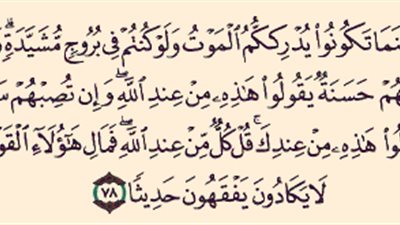 نَمَا تَكُونُوا۟ يُدْرِككُّمُ ٱلْمَوْتُ وَلَوْ كُنتُمْ فِى بُرُوجٍ مُّشَيَّدَةٍ ۗ
هُمْ حَسَنَةٌ يَقُولُوا۟ هَٰذِهِۦ مِنْ عِندِ ٱللَّهِ ۖ وَإِن تُصِبْهُمْ سَ
لُوا۟ هَٰذِهِۦ مِنْ عِندِكَ ۚ قُلْ كُلٌّ مِّنْ عِندِ ٱللَّهِ ۖ فَمَالِ هَٰٓؤُلَآءِ ٱلْقَوْ
لَا يَكَادُونَ يَفْقَهُونَ حَدِيثًا ٧٨